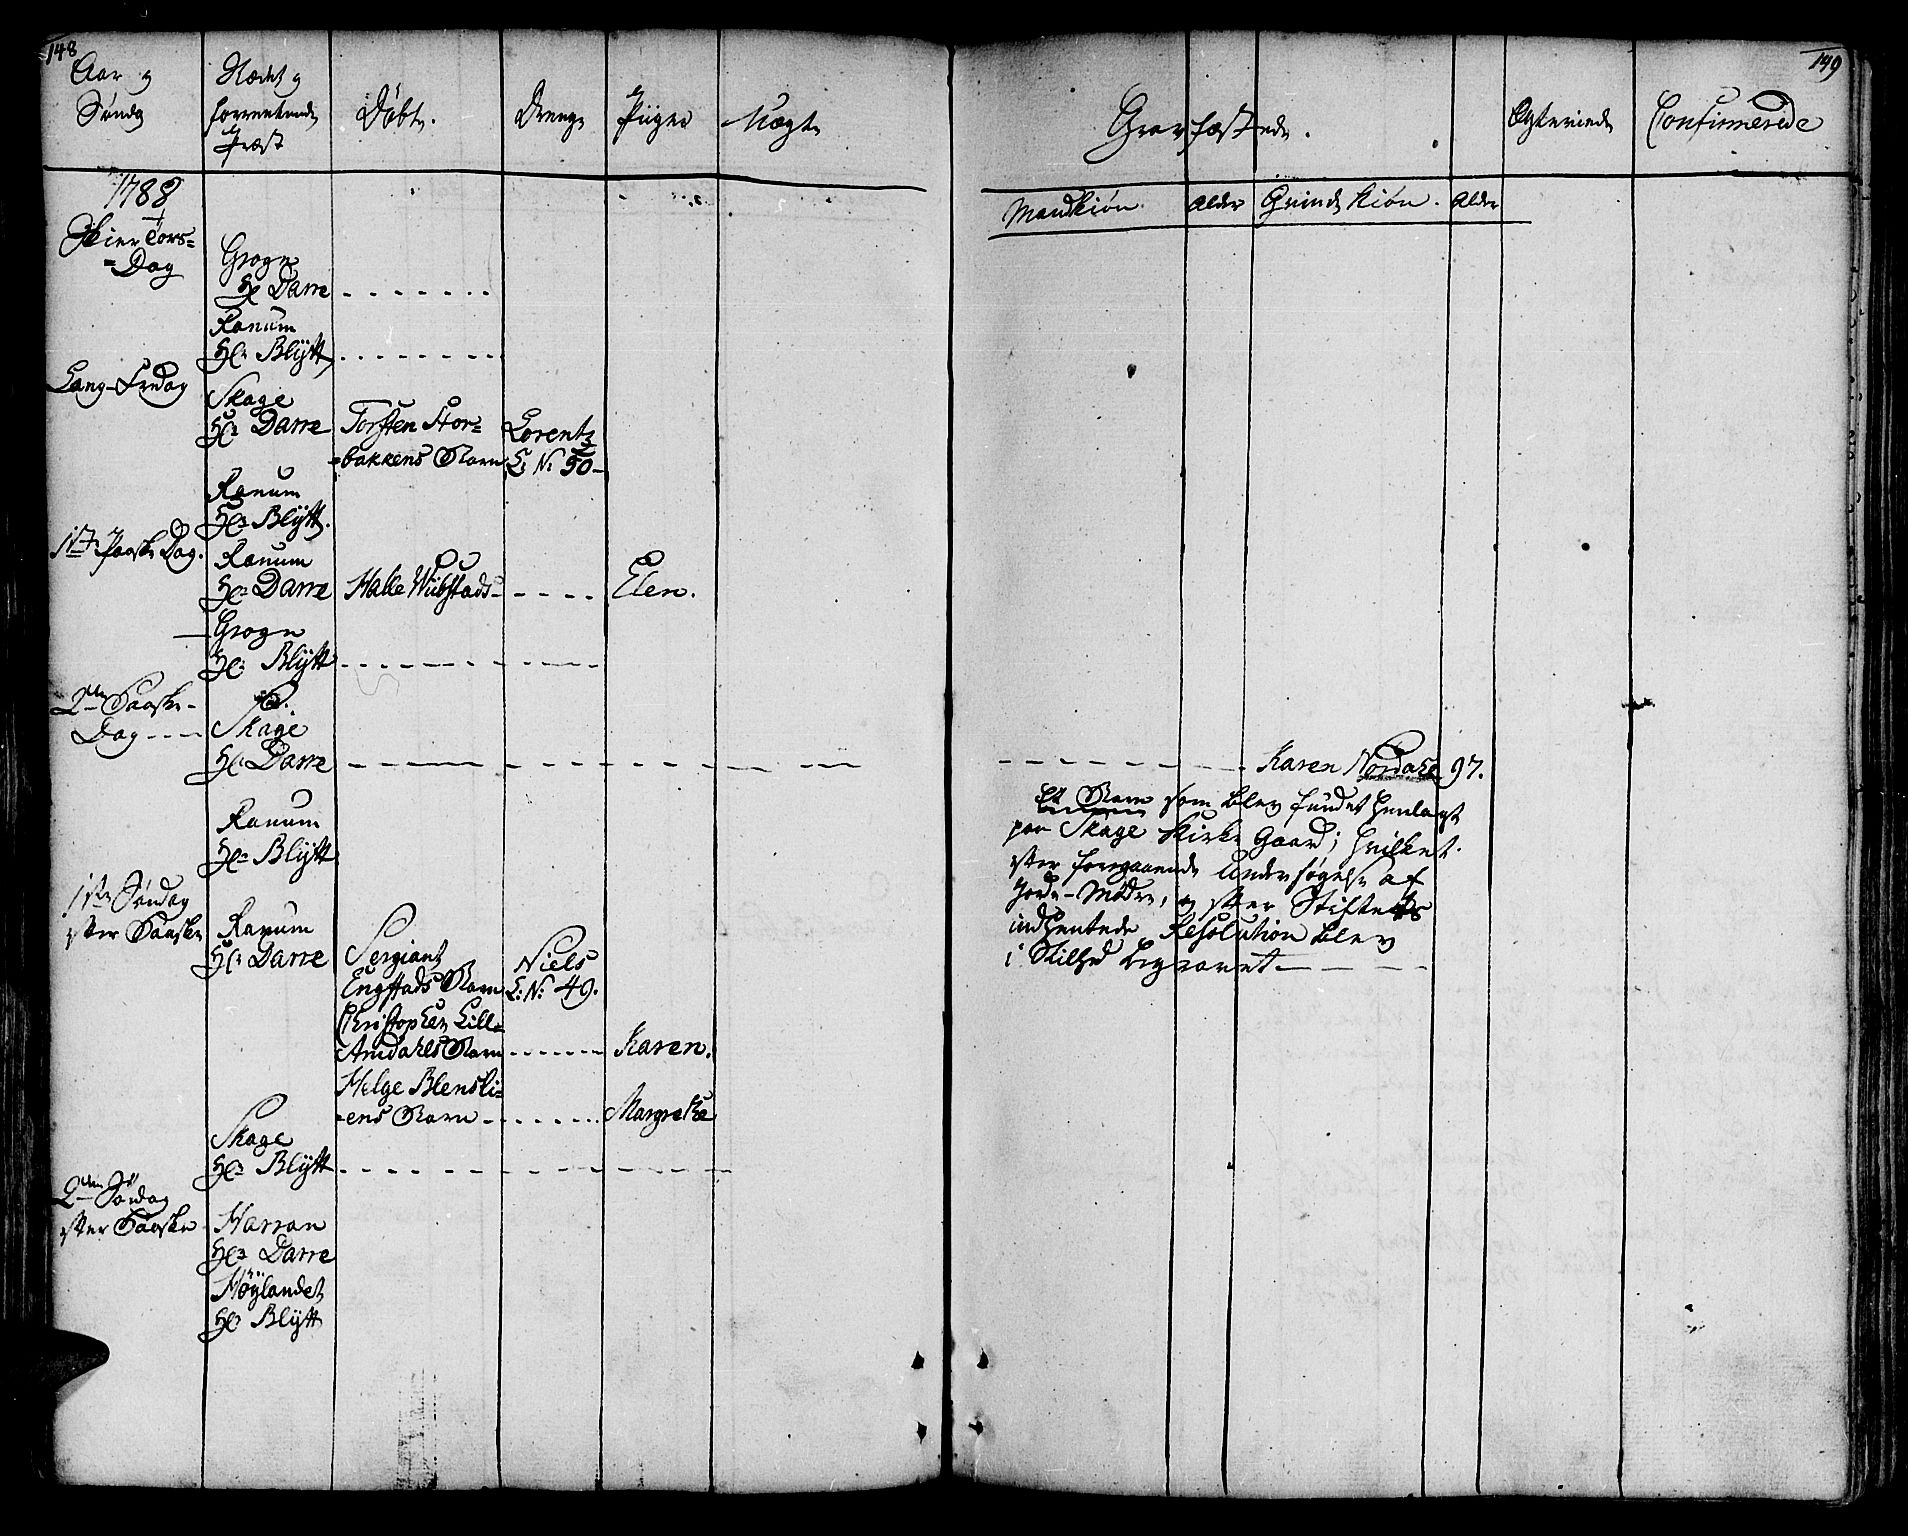 148
Aar og
Søndg
Stædet og
forrettende
Præst
Døbte.
Drenge
Piiger
1788
Skier Tors=
=Dag
Grogn
Hr Darre
Ranum
Hr: Blÿtt
Lang-Fredag
Skage
Hr: Darre
Torsten Stor=
=bakkens Barn
Lorentz
L: N: 50-
Ranum
Hr: Blÿtt.
1ste Paaske Dag.
Ranum
Hr: Darre
Halle Wiibstads-
Elen.
Grogn
Hr: Blÿtt
2den Paaske-
Dag
Skage
Hr: Darre
Ranum
Hr: Blÿtt
1ste Søndag
efter Paaske
Ranum
Hr: Darre
Sergiant
Engstads Barn
Niels
L: N: 49.
Christopher Lill=
Amdahls Barn
Karen.
Helge Blensli=
=ens Barn
Margrethe
Skage
Hr: Blÿtt
2den Søndag
efter Paaske
Harran
Hr: Darre
Höÿlandet
Hr: Blÿtt
149
Gravfæstede.
Egteviede
Confirmerede
Mandkiøn.
Alder
Qvindekiøn.
Alder
Karen Nordahl 97.
Et Barn som blev fundet henlagt
paa Skage Kirke Gaard; hvilket
efter foregaaende Undersøgelse af
Jorde-Mødre, og efter Stiftets
indhentede Resolution blev
i Stilhed begravet